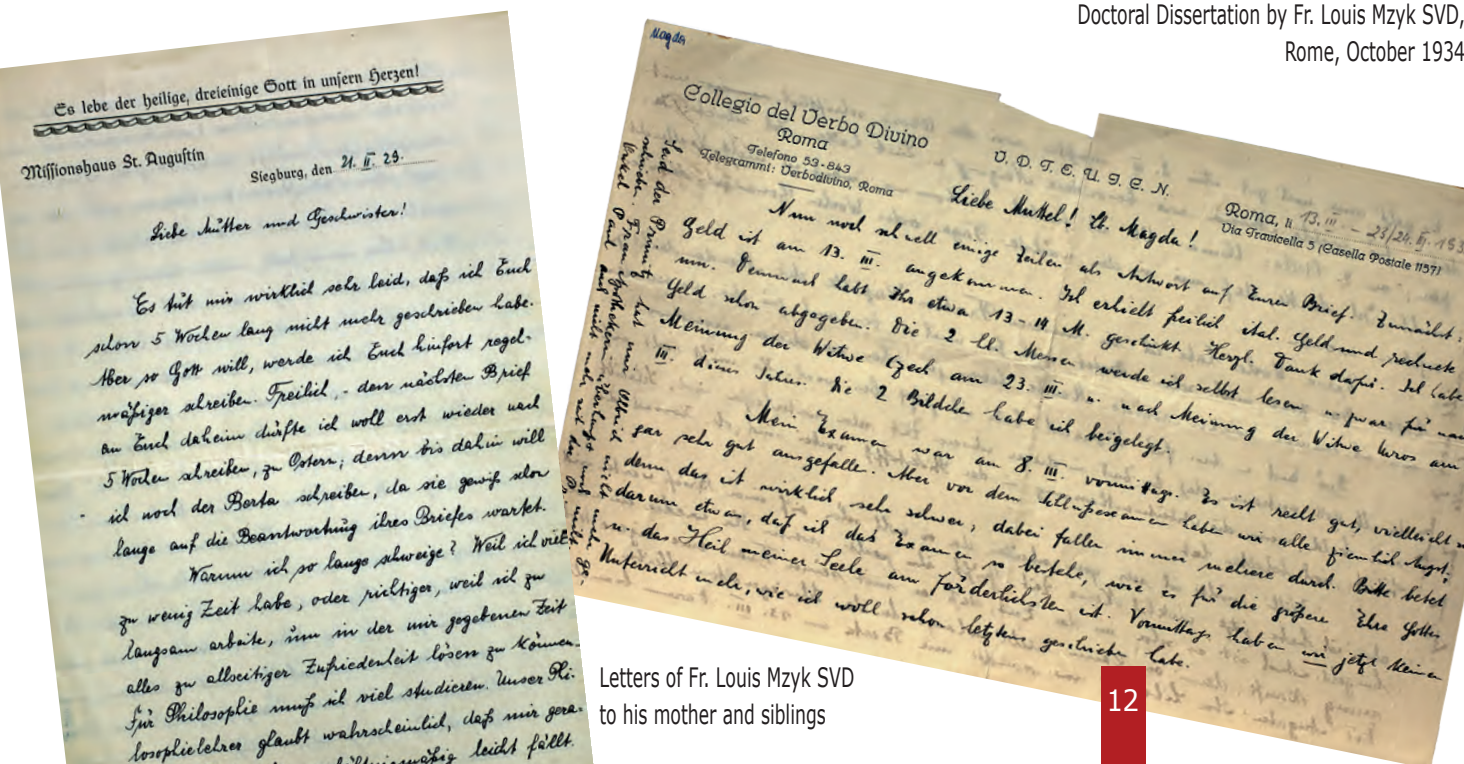 Doctoral Dissertation by Fr. Louis Mzyk SVD,
Rome, October 1934
Es lebe der heilige, dreieinige Gott in unsern Herzen!
Missionshaus St. Augustin
Siegburg, den 21. II. 29.
Liebe Mutter und Geschwister!
Es tut mir wirklich sehr leid, daß ich Euch
schon 5 Wochen lang nicht mehr geschrieben habe.
Aber so Gott will, werde ich Euch hinfort regel-
mäßiger schreiben. Freilich, den nächsten Brief
an Euch daheim dürfte ich woll erst wieder nach
5 Wochen schreiben, zu Ostern; denn bis dahin will
ich noch der Berta schreiben, da sie gewiß schon
lange auf die Beantwortung ihres Briefes wartet.
Warum ich so lange schweige? Weil ich viel
zu wenig Zeit habe, oder richtiger, weil ich zu
langsam arbeite, um in der mir gegebenen Zeit
alles zu allseitiger Zufriedenheit lösen zu können.
Für Philosophie muß ich viel studieren. Unser Phi-
losophielehrer glaubt wahrscheinlich, daß mir gera-
leicht fällt.
Magda
Collegio del Verbo Divino
Roma
Telefono 53-843
Telegrammi: Verbodivino, Roma
V. D. T. E. U. S. E. N.
Roma, li 13. III - 23/24. III. 193
Via Travicella 5 (Casella Postale 1157)
Liebe Muttel! Lb. Magda!
Nun noch schnell einige Zeilen als Antwort auf Euren Brief. Zunächst:
Geld ist am 13. III. angekommen. Ich erhielt freilich ital. Geld und rechnete
um. Demnach habt Ihr etwa 13-14 M. geschickt. Herzl. Dank dafür. Ich habe
Geld schon abgegeben. Die 2 hl. Messen werde ich selbst lesen u. zwar für nach
Meinung der Witwe Czech am 23. III. u. nach Meinung der Witwe am
III. dieses Jahres. Die 2 Bildchen habe ich beigelegt.
Mein Examen war am 8. III. vormittags. Es ist recht gut, vielleicht
gar sehr gut ausgefalle. Aber vor dem Schlußexamen haben wir alle ziemlich Angst,
denn das ist wirklich sehr schwer; dabei fallen immer mehrere durch. Bitte betet
darum etwas, daß ich das Examen so bestehe, wie es für die größere Ehre Gottes
u. das Heil meiner Seele am förderlichsten ist. Vormittags haben wir jetzt keinen
Unterricht mehr, wie ich woll schon letztens geschrieben habe.
Letters of Fr. Louis Mzyk SVD
to his mother and siblings
12